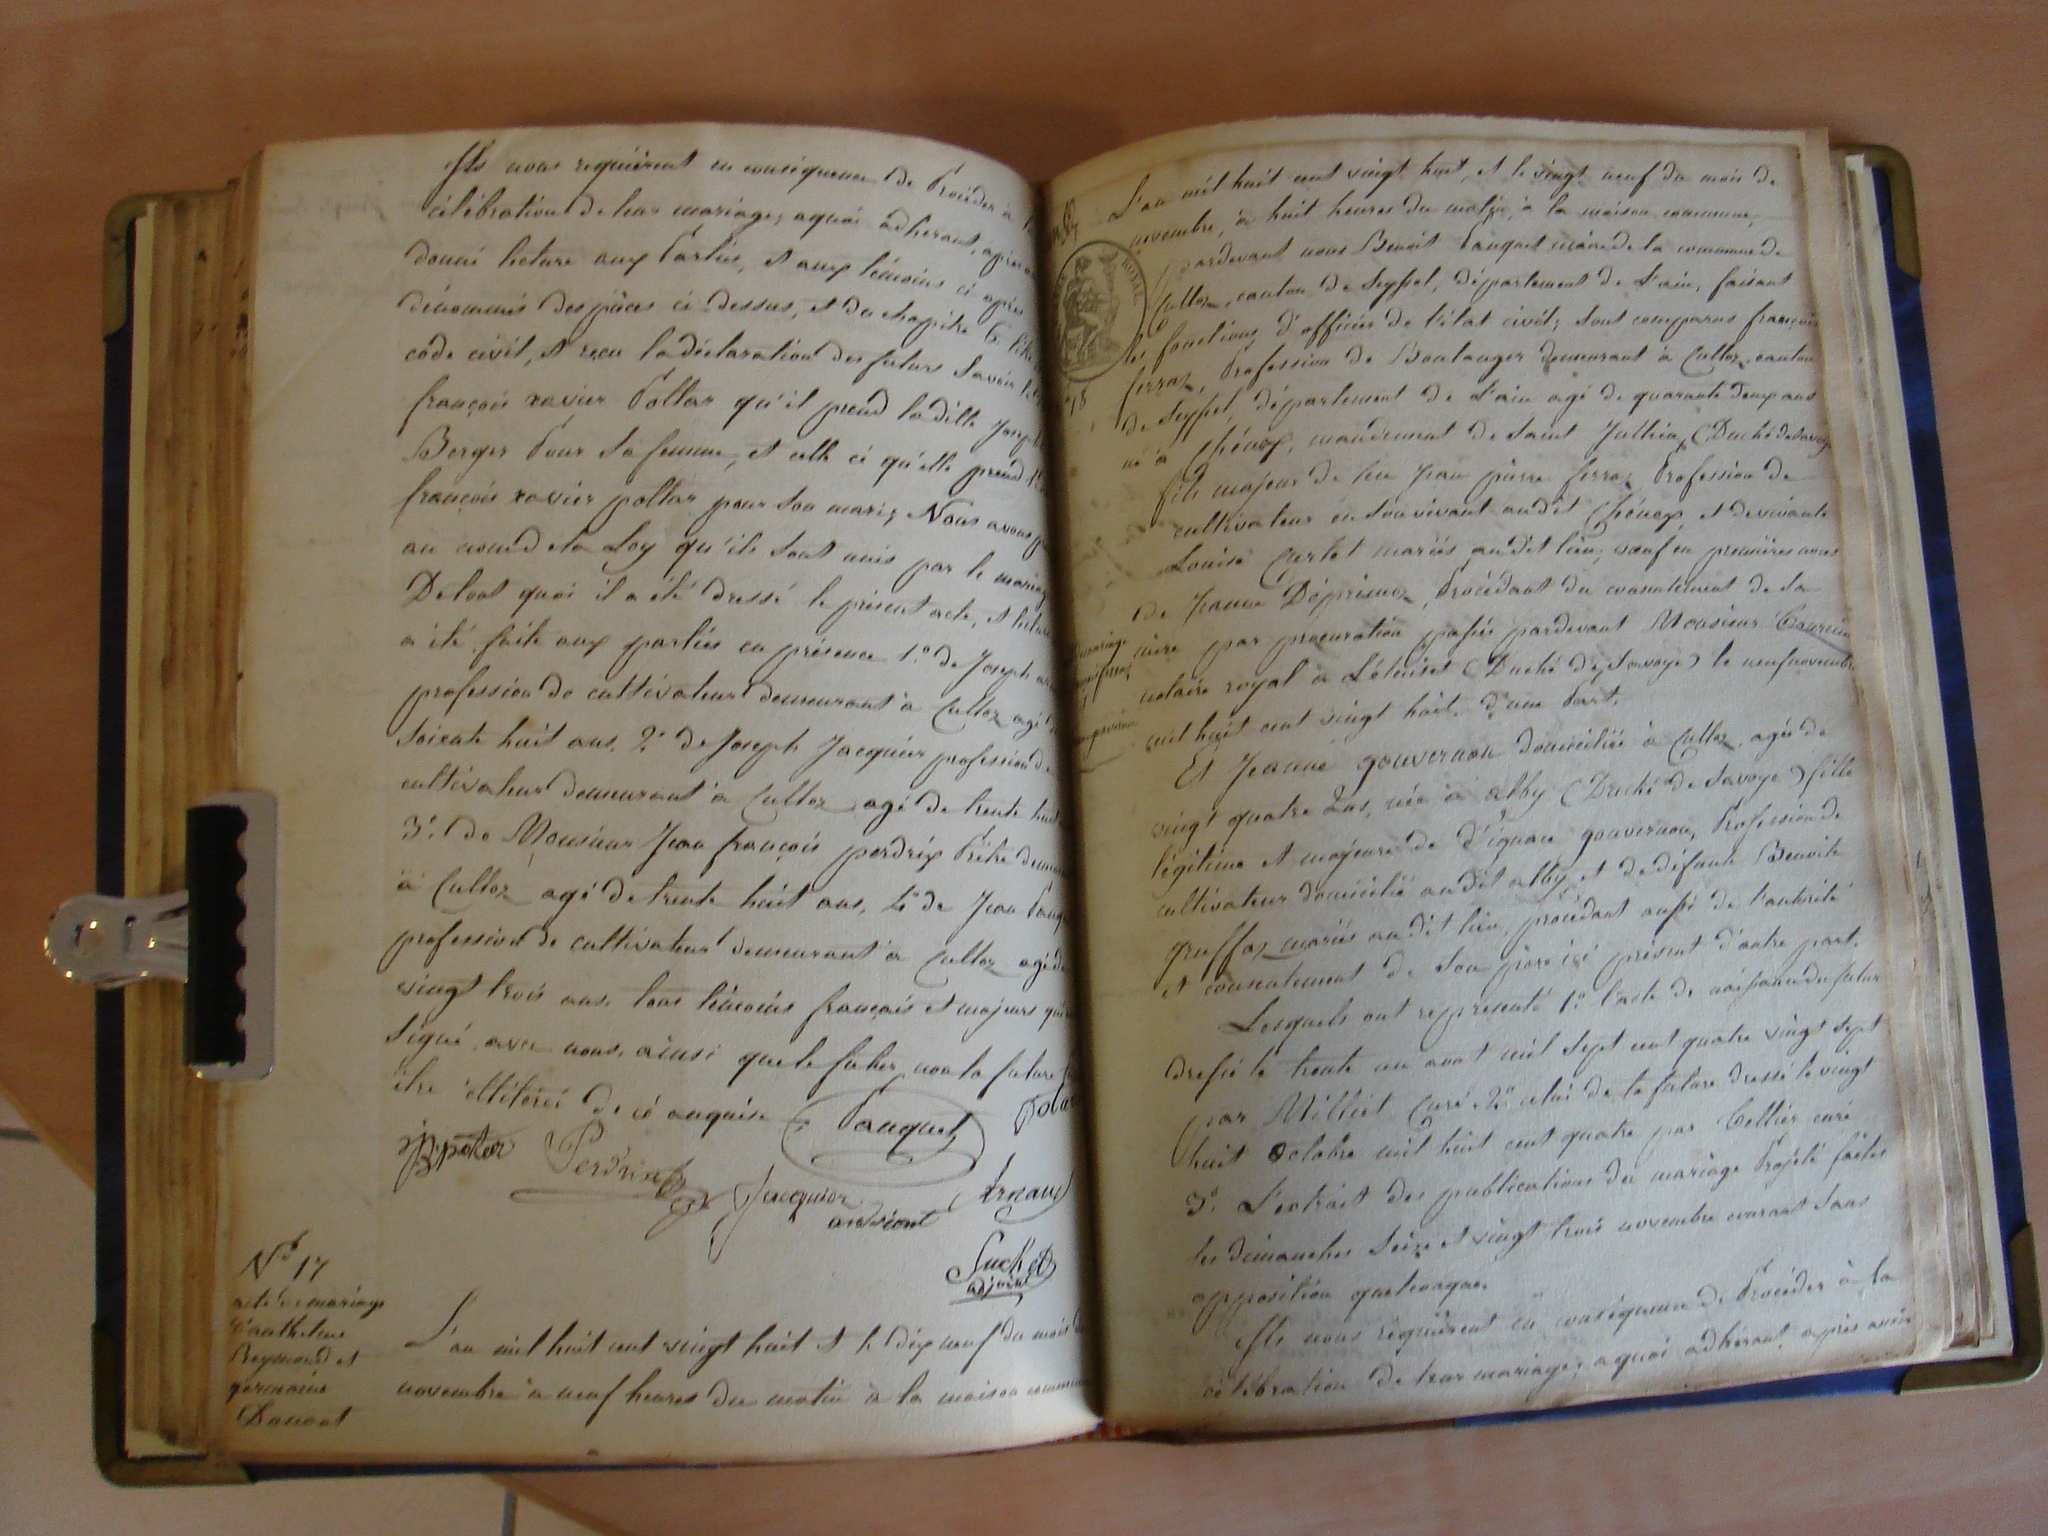 Ils nous requièrent en conséquence de Procéder à
célébration de leur mariage; aquoi adhérant, après
donné lecture aux Parties, et aux témoins ci après
dénommés des pièces ci-dessus, et du chapitre 6
code civil, et reçu la déclaration des futurs Savoir
françois xavier Pollar qu'il prend la ditte
Berger Pour Sa femme, et celle ci qu'elle prend
françois xavier pollar pour Son mari; Nous avons
au nom de la Loy qu'ils Sont unis par le mariage
De tout quoi il a été dressé le présent acte, et lecture
a été faite aux parties en présence 1.° de Joseph
profession de cultivateur demeurant à Culloz agé
Soixante huit ans, 2.° de Joseph Jacquier profession de
cultivateur demeurant à Culloz agé de trente
3.° de Monsieur Jean françois perdrix Prêtre
à Culloz agé de trente huit ans, 4.° de Jean
profession de cultivateur demeurant à Culloz agé de
vingt trois ans, tous témoins français et majeurs qui
Signé avec nous, ainsi que le futur, non la future
être illitérée de ce enquise Pauquet
Perdrix
Jacquier
Suchet
adjoint
N° 17
acte de mariage
d'anthelme
Reymond et
germaine
L'an mil huit cent vingt huit et le dix neuf du mois
novembre à neuf heures du matin à la maison commune
L'an mil huit cent vingt huit, et le vingt neuf du mois de
novembre, à huit heures du matin, à la maison commune,
pardevant nous Benoit Pauquet maire de la commune de
Culloz, canton de Seyssel, département de l'ain, faisant
les fonctions d'officier de l'état civil; Sont comparus françois
ferraz, Profession de Boulanger demeurant à Culloz canton
de Seyssel, département de l'ain agé de quarante deux ans
né à Chénex, mandement de Saint Jullien (Duché de Savoye
fils majeur de feu Jean pierre ferraz Profession de
cultivateur en Son vivant audit Chénex, et de vivante
Louise Curlet mariés audit lieu, veuf en premières noces
de Jeanne Déprimoz, Procédant du consentement de Sa
mère par procuration passée pardevant Monsieur
notaire royal à L'éluiset (Duché de Savoye) le neuf novembre
mil huit cent vingt huit. d'une Part.
Et Jeanne gouvernon domiciliée à Culloz, agée de
vingt quatre ans, née à alby (Duché de Savoye) fille
légitime et majeure de d'ignace gouvernon, Profession de
cultivateur domicilié audit alby et de défunte Benoite
gruffaz mariés audit lieu, procédant aussi de l'autorité
et consentement de Son père ici présent d'autre part.
Lesquels ont représenté 1.° l'acte de naissance du futur
dressé le trente un aout mil sept cent quatre vingt sept
par Milliet Curé 2.° celui de la future dressé le vingt
huit Octobre mil huit cent quatre par Cellier curé
3.° L'extrait des publications du mariage Projeté faites
les dimanches Seize et vingt trois novembre courant Sans
opposition quelconque.
Ils nous requièrent en conséquence de Procéder à la
célébration de leur mariage; aquoi adhérant, après avoir